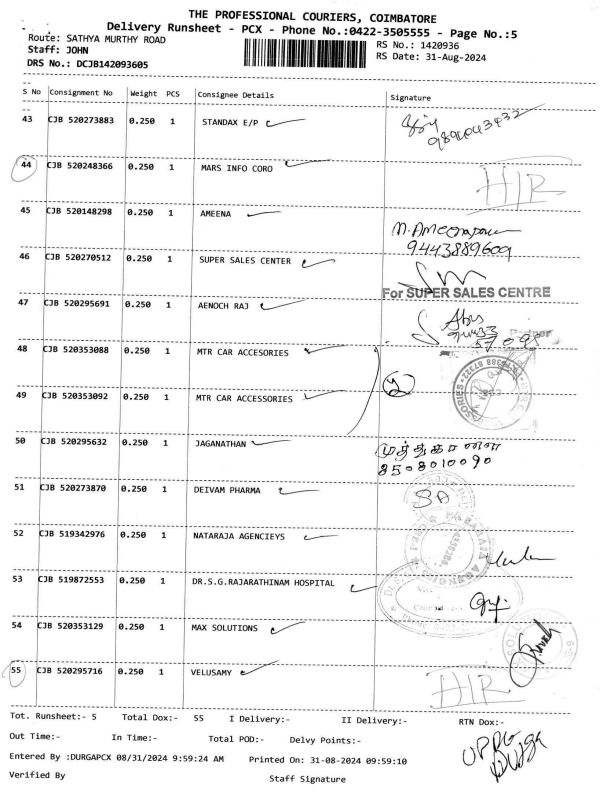 THE PROFESSIONAL COURIERS, COIMBATORE
Delivery Runsheet - PCX - Phone No.:0422-3505555 - Page No.:5
Route: SATHYA MURTHY ROAD
RS No.: 1420936
Staff: JOHN
RS Date: 31-Aug-2024
DRS No.: DCJB142093605
S No Consignment No Weight PCS Consignee Details Signature
43 CJB 520273883 0.250 1 STANDAX E/P
44 CJB 520248366 0.250 1 MARS INFO CORO
45 CJB 520148298 0.250 1 AMEENA
9443889609
46 CJB 520270512 0.250 1 SUPER SALES CENTER
For SUPER SALES CENTRE
47 CJB 520295691 0.250 1 AENOCH RAJ
48 CJB 520353088 0.250 1 MTR CAR ACCESORIES
49 CJB 520353092 0.250 1 MTR CAR ACCESSORIES
50 CJB 520295632 0.250 1 JAGANATHAN
8508010090
51 CJB 520273870 0.250 1 DEIVAM PHARMA
52 CJB 519342976 0.250 1 NATARAJA AGENCIEYS
53 CJB 519872553 0.250 1 DR.S.G.RAJARATHINAM HOSPITAL
54 CJB 520353129 0.250 1 MAX SOLUTIONS
55 CJB 520295716 0.250 1 VELUSAMY
Tot. Runsheet:- 5 Total Dox:- 55 I Delivery:- II Delivery:- RTN Dox:-
Out Time:- In Time:- Total POD:- Delvy Points:-
Entered By :DURGAPCX 08/31/2024 9:59:24 AM Printed On: 31-08-2024 09:59:10
Verified By Staff Signature